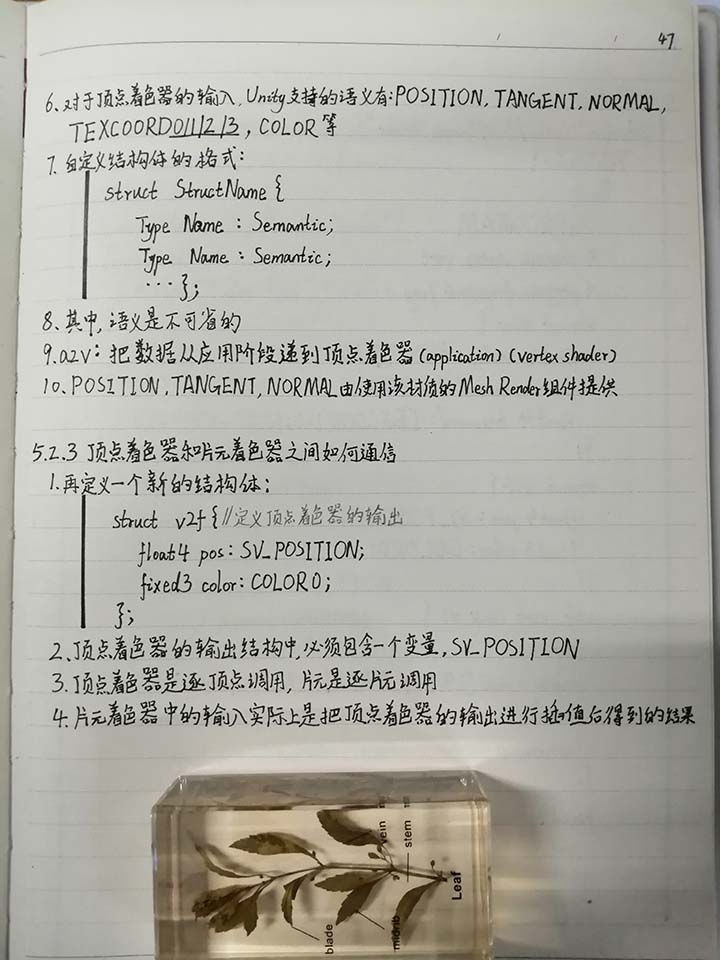 47
6、对于顶点着色器的输入,Unity支持的语义有:POSITION, TANGENT, NORMAL,
TEXCOORD0/1/2/3, COLOR等
7、自定义结构体的格式:
struct StructName {
Type Name : Semantic;
Type Name : Semantic;
...};
8、其中,语义是不可省的
9、a2v: 把数据从应用阶段递到顶点着色器(application)(vertex shader)
10、POSITION, TANGENT, NORMAL由使用该材质的Mesh Render组件提供
5.2.3 顶点着色器和片元着色器之间如何通信
1、再定义一个新的结构体:
struct v2f { //定义顶点着色器的输出
float4 pos: SV_POSITION;
fixed3 color: COLOR0;
};
2、顶点着色器的输出结构中,必须包含一个变量,SV_POSITION
3、顶点着色器是逐顶点调用,片元是逐片元调用
4、片元着色器中的输入实际上是把顶点着色器的输出进行插值后得到的结果
vein
stem
Leaf
blade
midrib